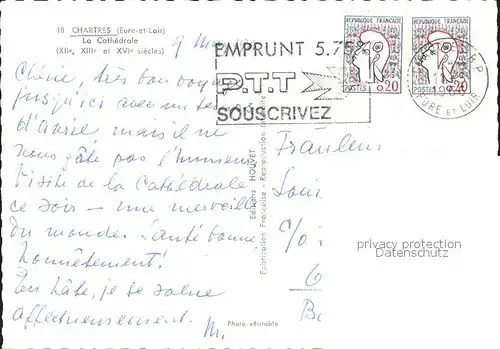 10 CHARTRES (Eure-et-Loir)
La Cathédrale
(XIIe, XIIIe et XVIe siècles)
9 Mai
EMPRUNT 5.75%
P.T.T
SOUSCRIVEZ
REPUBLIQUE FRANÇAISE
POSTES 0,20
REPUBLIQUE FRANÇAISE
POSTES 0,20
EURE ET LOIR
Chérie, très bon voyage
jusqu'ici avec un temps
d'avril mais il ne
nous gâte pas l'humeur
Visite de la Cathédrale
ce soir — une merveille
du monde. Santé bonne,
honnêtement!
En hâte, je te salue
affectueusement.
M.
Editions HOUVET
Fabrication Française - Reproduction Interdite
Photo véritable
Fräulein
C/o
privacy protection
Datenschutz